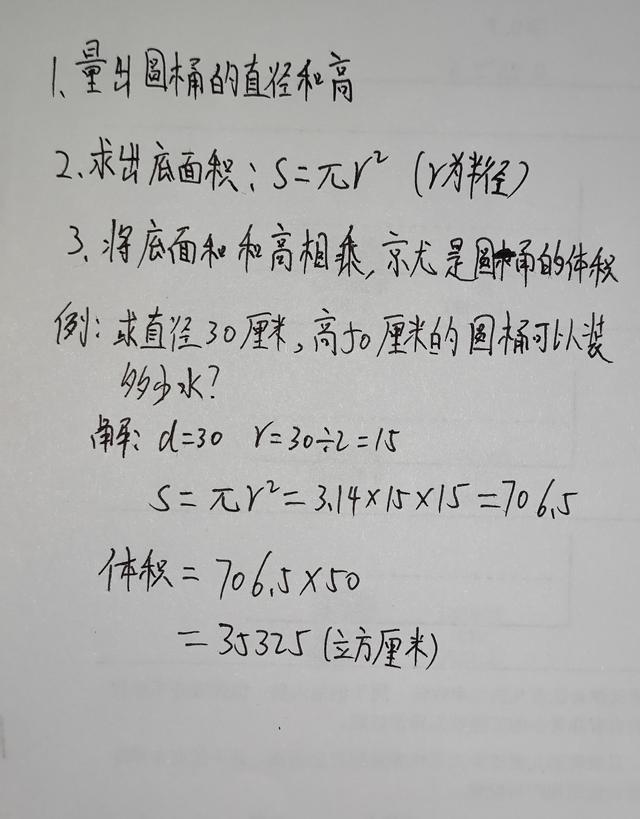 1、量出圆桶的直径和高
2、求出底面积:S=πr² (r为半径)
3、将底面和和高相乘,就是圆桶的体积
例:求直径30厘米,高50厘米的圆桶可以装
多少水?
解:d=30 r=30÷2=15
S=πr²=3.14×15×15=706.5
体积=706.5×50
=35325(立方厘米)